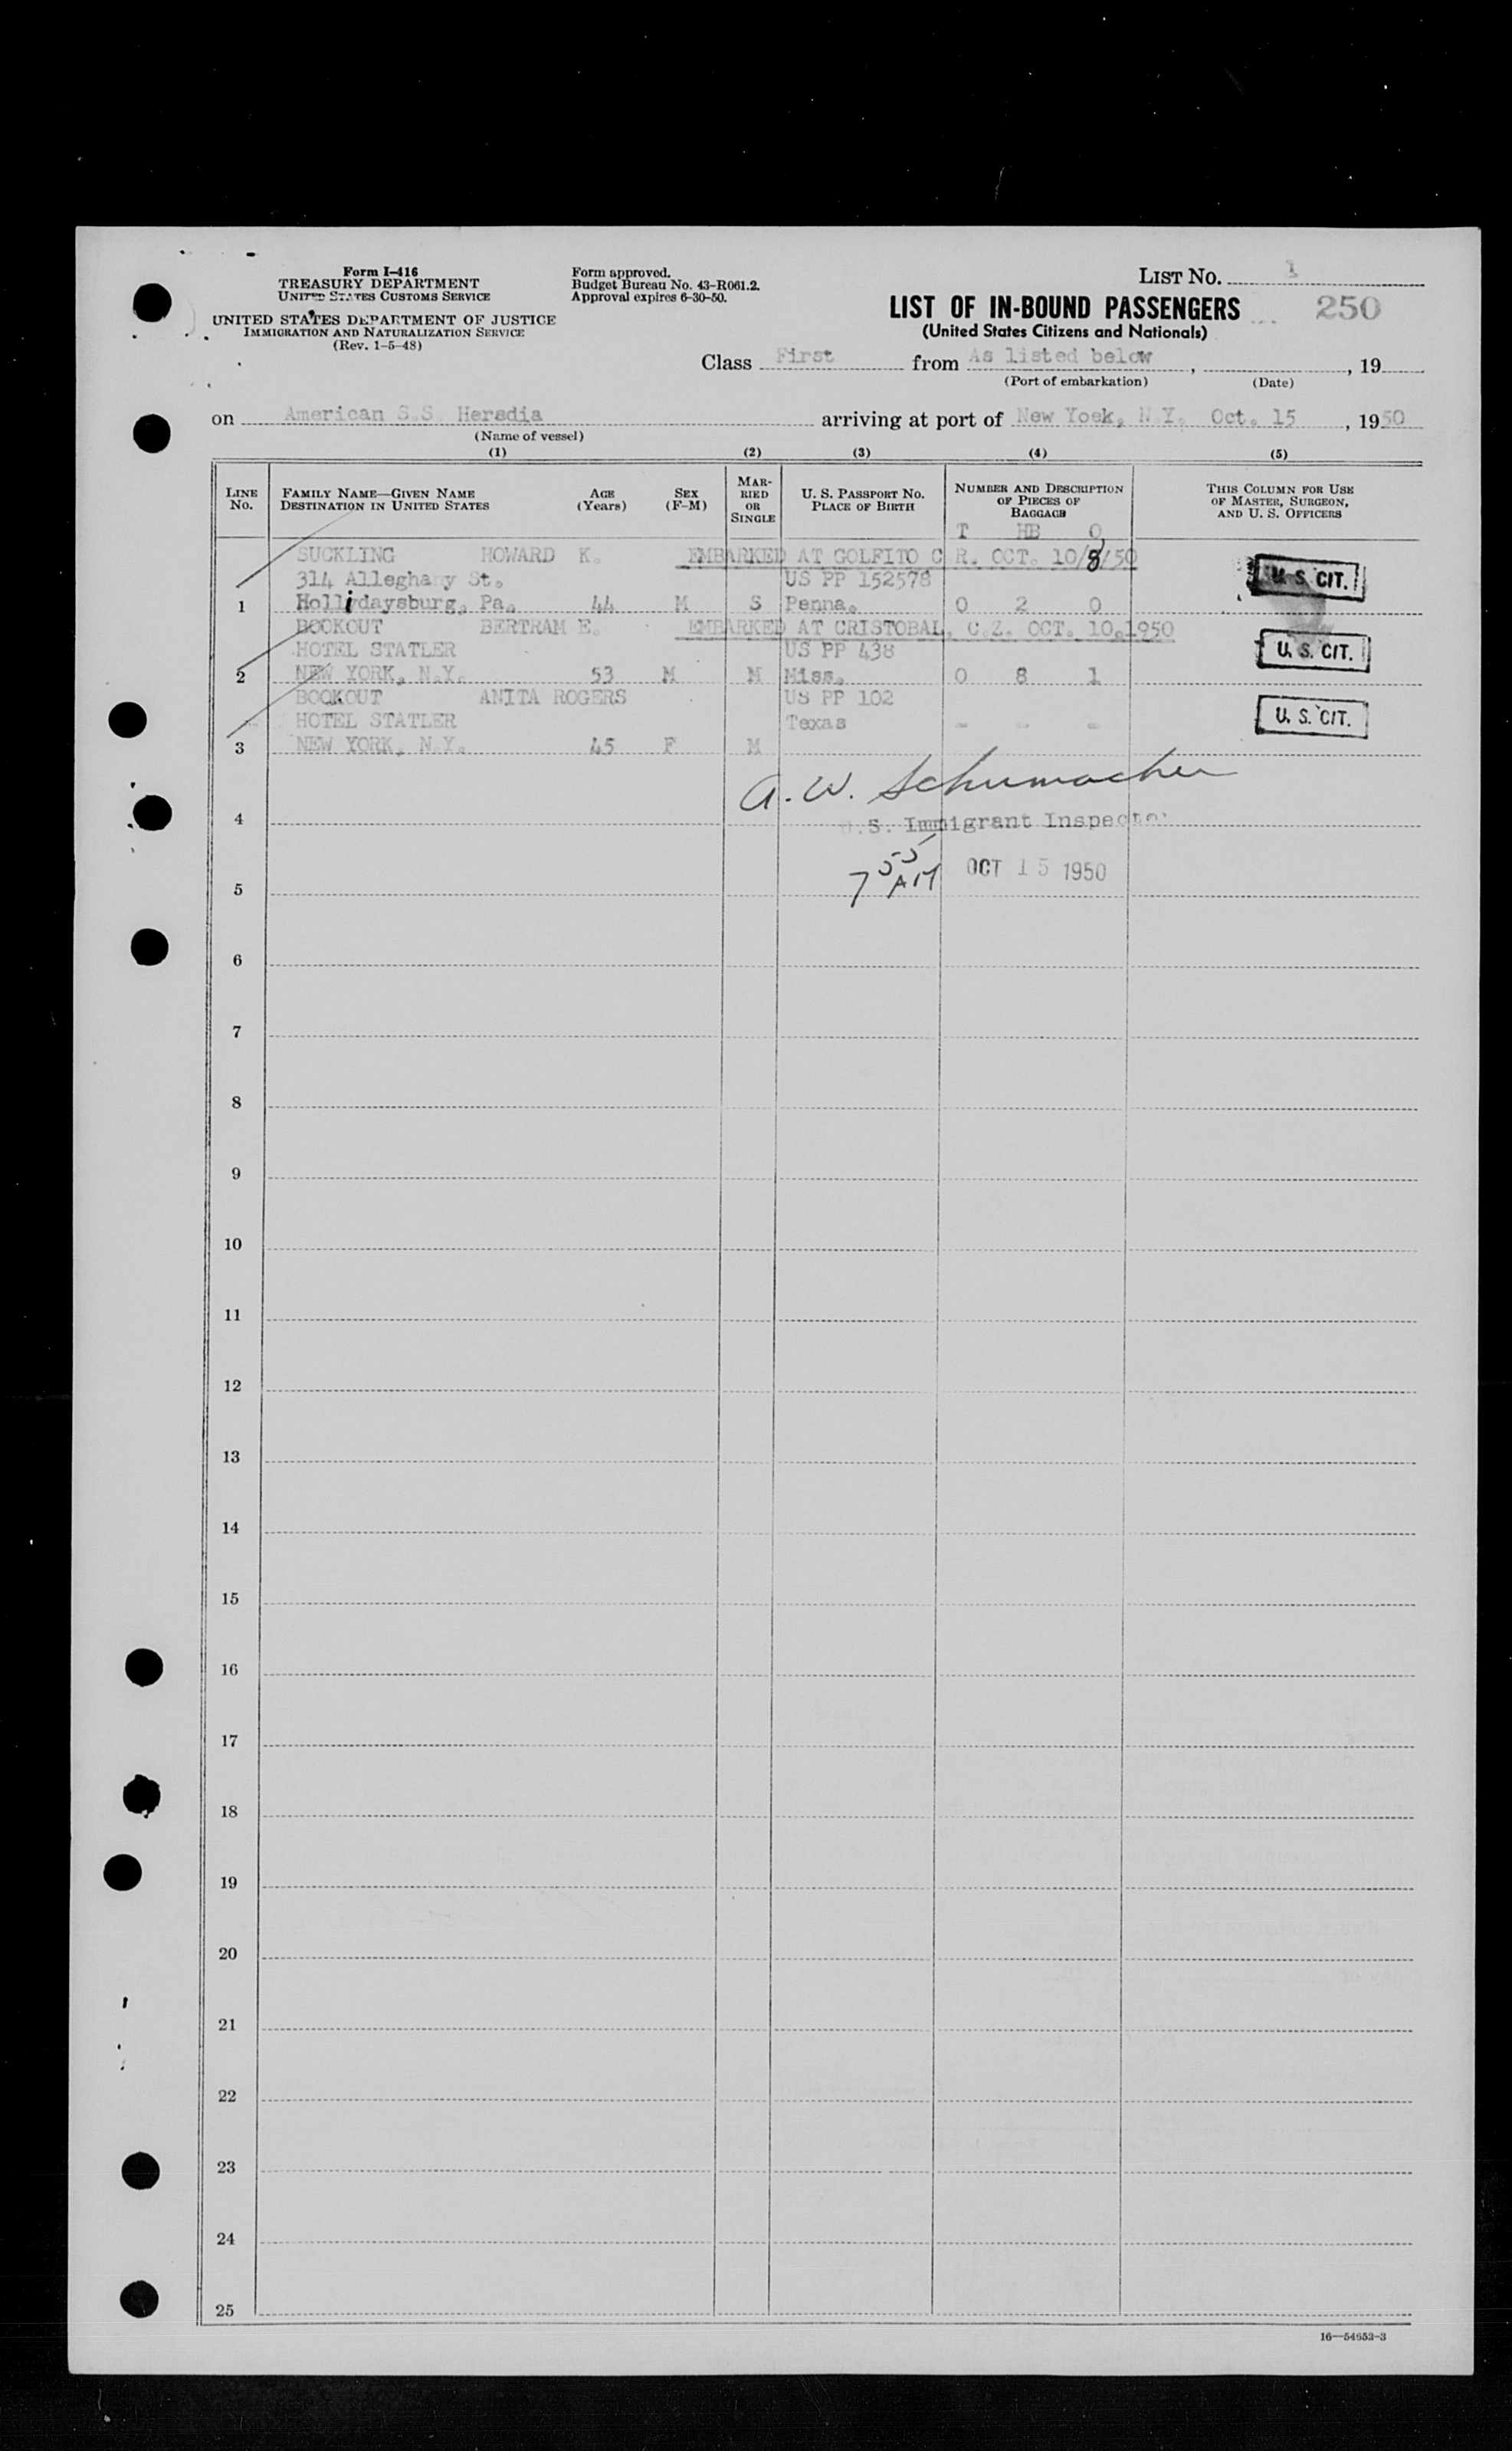 Form I-416
TREASURY DEPARTMENT
UNITED STATES CUSTOMS SERVICE
UNITED STATES DEPARTMENT OF JUSTICE
IMMIGRATION AND NATURALIZATION SERVICE
(Rev. 1-5-48)
Form approved.
Budget Bureau No. 43-R061.2.
Approval expires 6-30-50.
LIST No. 1
LIST OF IN-BOUND PASSENGERS 250
(United States Citizens and Nationals)
Class First from As listed below, , 19
(Port of embarkation) (Date)
on American S.S. Heredia arriving at port of New Yoek, N.Y. Oct. 15, 1950
(Name of vessel)
(1) (2) (3) (4) (5)
LINE No. FAMILY NAME—GIVEN NAME DESTINATION IN UNITED STATES AGE (Years) SEX (F-M) MARRIED OR SINGLE U. S. PASSPORT No. PLACE OF BIRTH NUMBER AND DESCRIPTION OF PIECES OF BAGGAGE THIS COLUMN FOR USE OF MASTER, SURGEON, AND U. S. OFFICERS
T HB O
SUCKLING HOWARD K. EMBARKED AT GOLFITO C R. OCT. 10/8/50
314 Alleghany St. US PP 152578 U. S. CIT.
1 Hollidaysburg, Pa. 44 M S Penna. 0 2 0
BOOKOUT BERTRAM E. EMBARKED AT CRISTOBAL, C.Z. OCT. 10,1950
HOTEL STATLER US PP 438 U. S. CIT.
2 NEW YORK, N.Y. 53 M M Miss. 0 8 1
BOOKOUT ANITA ROGERS US PP 102
HOTEL STATLER Texas - - - U. S. CIT.
3 NEW YORK, N.Y. 45 F M
A. W. Schumacher
4 U.S. Immigrant Inspector
7 55 AM OCT 15 1950
5
6
7
8
9
10
11
12
13
14
15
16
17
18
19
20
21
22
23
24
25
16—54652-3